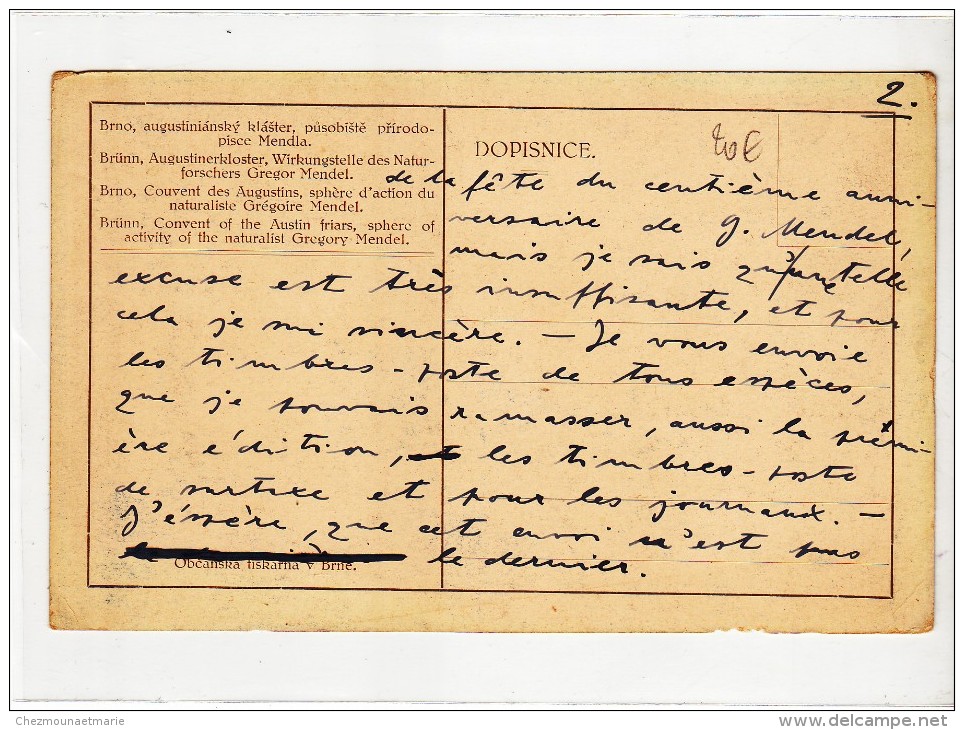 2.
Brno, augustiniánský klášter, působiště přírodo-
pisce Mendla.
Brünn, Augustinerkloster, Wirkungstelle des Natur-
forschers Gregor Mendel.
Brno, Couvent des Augustins, sphère d'action du
naturaliste Grégoire Mendel.
Brünn, Convent of the Austin friars, sphere of
activity of the naturalist Gregory Mendel.
DOPISNICE.
20€
de la fête du centième anni-
versaire de G. Mendel,
mais je sais qu'une telle
excuse est très insuffisante, et pour
cela je suis sincère. — Je vous envoie
les timbres-poste de tous espèces,
que je pouvais ramasser, aussi la prémi-
ère édition, les timbres-poste
de surtaxe et pour les journaux. —
J'éspère, que cet envoi n'est pas
le dernier.
Občanská tiskárna v Brně.
Chezmounaetmarie
www.delcampe.net